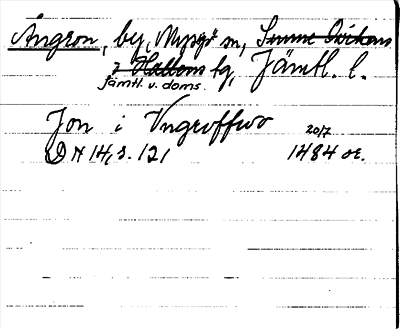 Ångron, by, Myssjö sn, Sunne Ovikens
o Hallens tg, Jämtl. l.
Jämtl. v. doms.
Jon i Vngroffwo 20/7
DN 14, s. 121 1484 or.